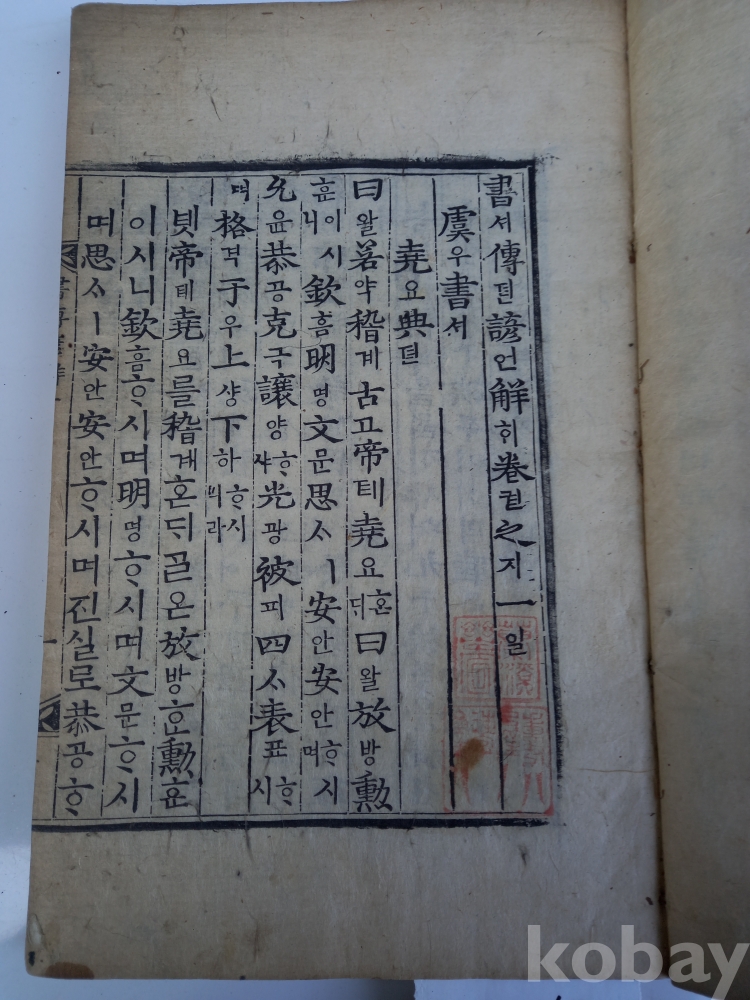 書셔傳뎐諺언解ᄒᆡ卷권之지一일
虞우書셔
堯요典뎐
曰왈若약稽계古고帝뎨堯요ᄒᆞᆫᄃᆡ曰왈放방勳
훈이시니欽흠明명文문思ᄉᆞㅣ安안安안ᄒᆞ시며
允윤恭공克극讓양ᄒᆞ샤光광被피四ᄉᆞ表표ᄒᆞ시
며格격于우上샹下하ᄒᆞ시니라
녯帝뎨堯요를稽계혼ᄃᆡᄀᆞᆯ온放방ᄒᆞᆫ勳훈
이시니欽흠ᄒᆞ시며明명ᄒᆞ시며文문ᄒᆞ시
며思ᄉᆞㅣ安안安안ᄒᆞ시며진실로恭공ᄒᆞ
kobay